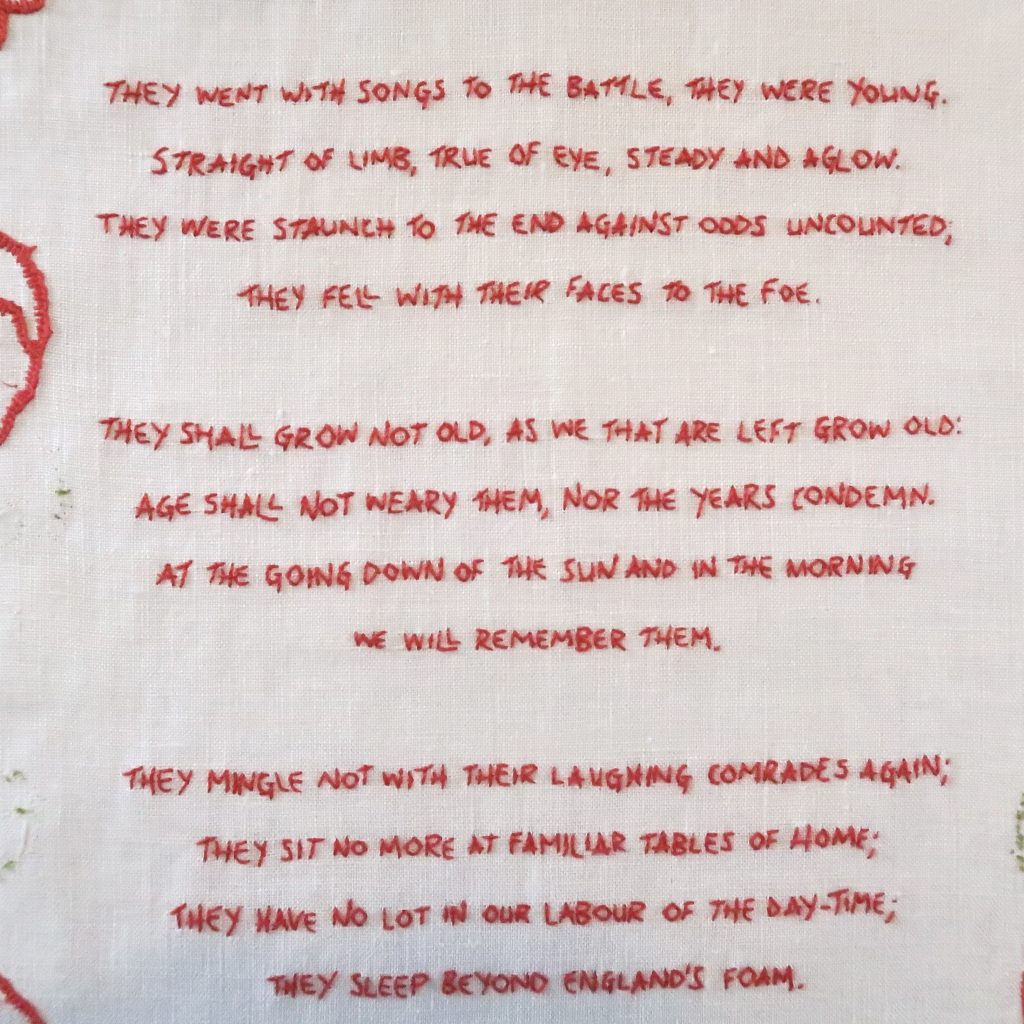 THEY WENT WITH SONGS TO THE BATTLE, THEY WERE YOUNG.
STRAIGHT OF LIMB, TRUE OF EYE, STEADY AND AGLOW.
THEY WERE STAUNCH TO THE END AGAINST ODDS UNCOUNTED;
THEY FELL WITH THEIR FACES TO THE FOE.
THEY SHALL GROW NOT OLD, AS WE THAT ARE LEFT GROW OLD:
AGE SHALL NOT WEARY THEM, NOR THE YEARS CONDEMN.
AT THE GOING DOWN OF THE SUN AND IN THE MORNING
WE WILL REMEMBER THEM.
THEY MINGLE NOT WITH THEIR LAUGHING COMRADES AGAIN;
THEY SIT NO MORE AT FAMILIAR TABLES OF HOME;
THEY HAVE NO LOT IN OUR LABOUR OF THE DAY-TIME;
THEY SLEEP BEYOND ENGLAND'S FOAM.